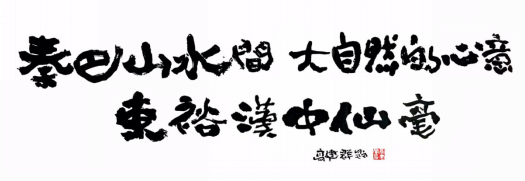 秦巴山水間 大自然的心意
東裕漢中仙毫